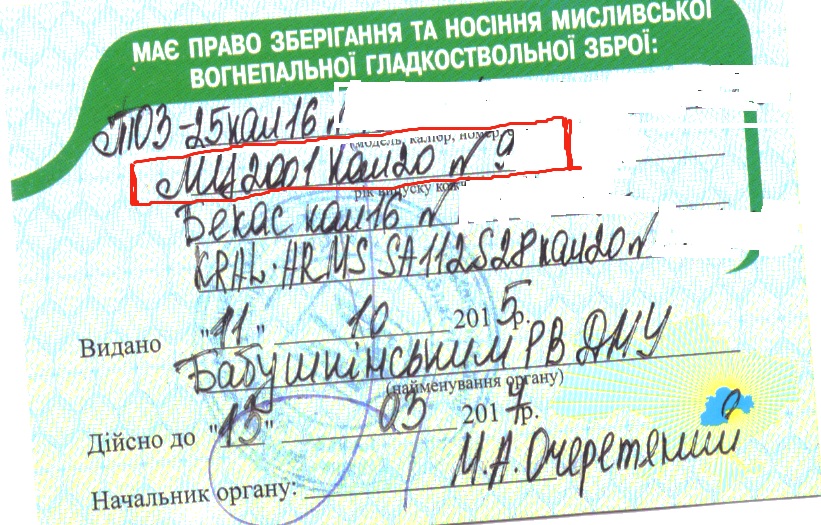 МАЄ ПРАВО ЗБЕРІГАННЯ ТА НОСІННЯ МИСЛИВСЬКОЇ
ВОГНЕПАЛЬНОЇ ГЛАДКОСТВОЛЬНОЇ ЗБРОЇ:
ТОЗ-25 кал 16 №
(модель, калібр, номер,
МЦ 2001 кал 20 №
рік випуску кож
Бекас кал 16 №
KRAL·ARMS SA112S28 кал 20 №
Видано "11" 10 2015р.
Бабушкінським РВ ДМУ
(найменування органу)
Дійсно до "15" 03 2017р.
М.А. Очеретяний
Начальник органу: